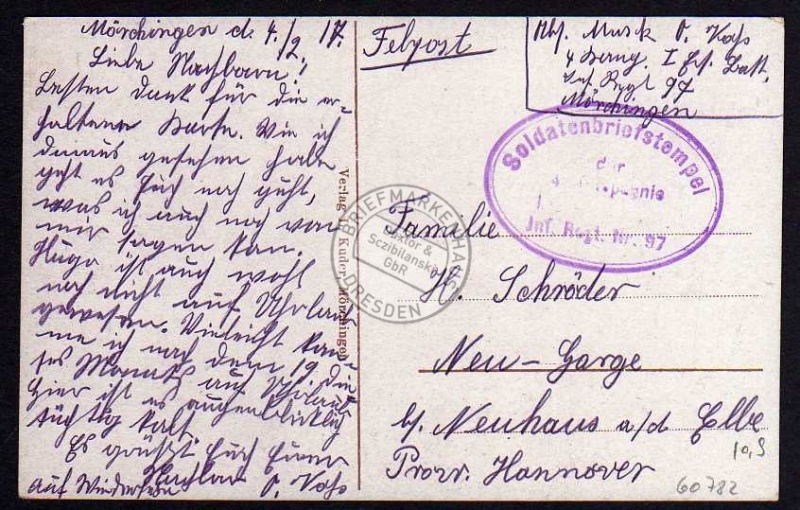 Mörchingen d. 4/2. 17.
Liebe Nachbarn!
Besten Dank für die er-
haltene Karte. Wie ich
daraus gesehen habe
geht es Euch noch guht,
was ich auch noch von
mir sagen kan.
Hugo ist auch wohl
noch nicht auf Uhrlaub
gewesen. Vieleicht kom-
me ich nach dem 19. die
ses Monats auf Uhrlaub
Hier ist es augenblicklig
tüchtig kalt.
Es grüßt Euch Euer
Nachbar
auf Wiedersehn O. Voß
Verlag Kuder, Mörchingen
Felpost
Abs. Musk O. Voß
4 Komp. I Ers. Batl.
Inf. Regt 97
Mörchingen
Soldatenbriefstempel
der
4. Kompagnie
Inf. Regt. Nr. 97
BRIEFMARKENHAUS
Saktor &
Sczibilanski
GbR
DRESDEN
Familie
H. Schröder
Neu-Garge
b/. Neuhaus a/d Elbe
Prov. Hannover
10,9
60782